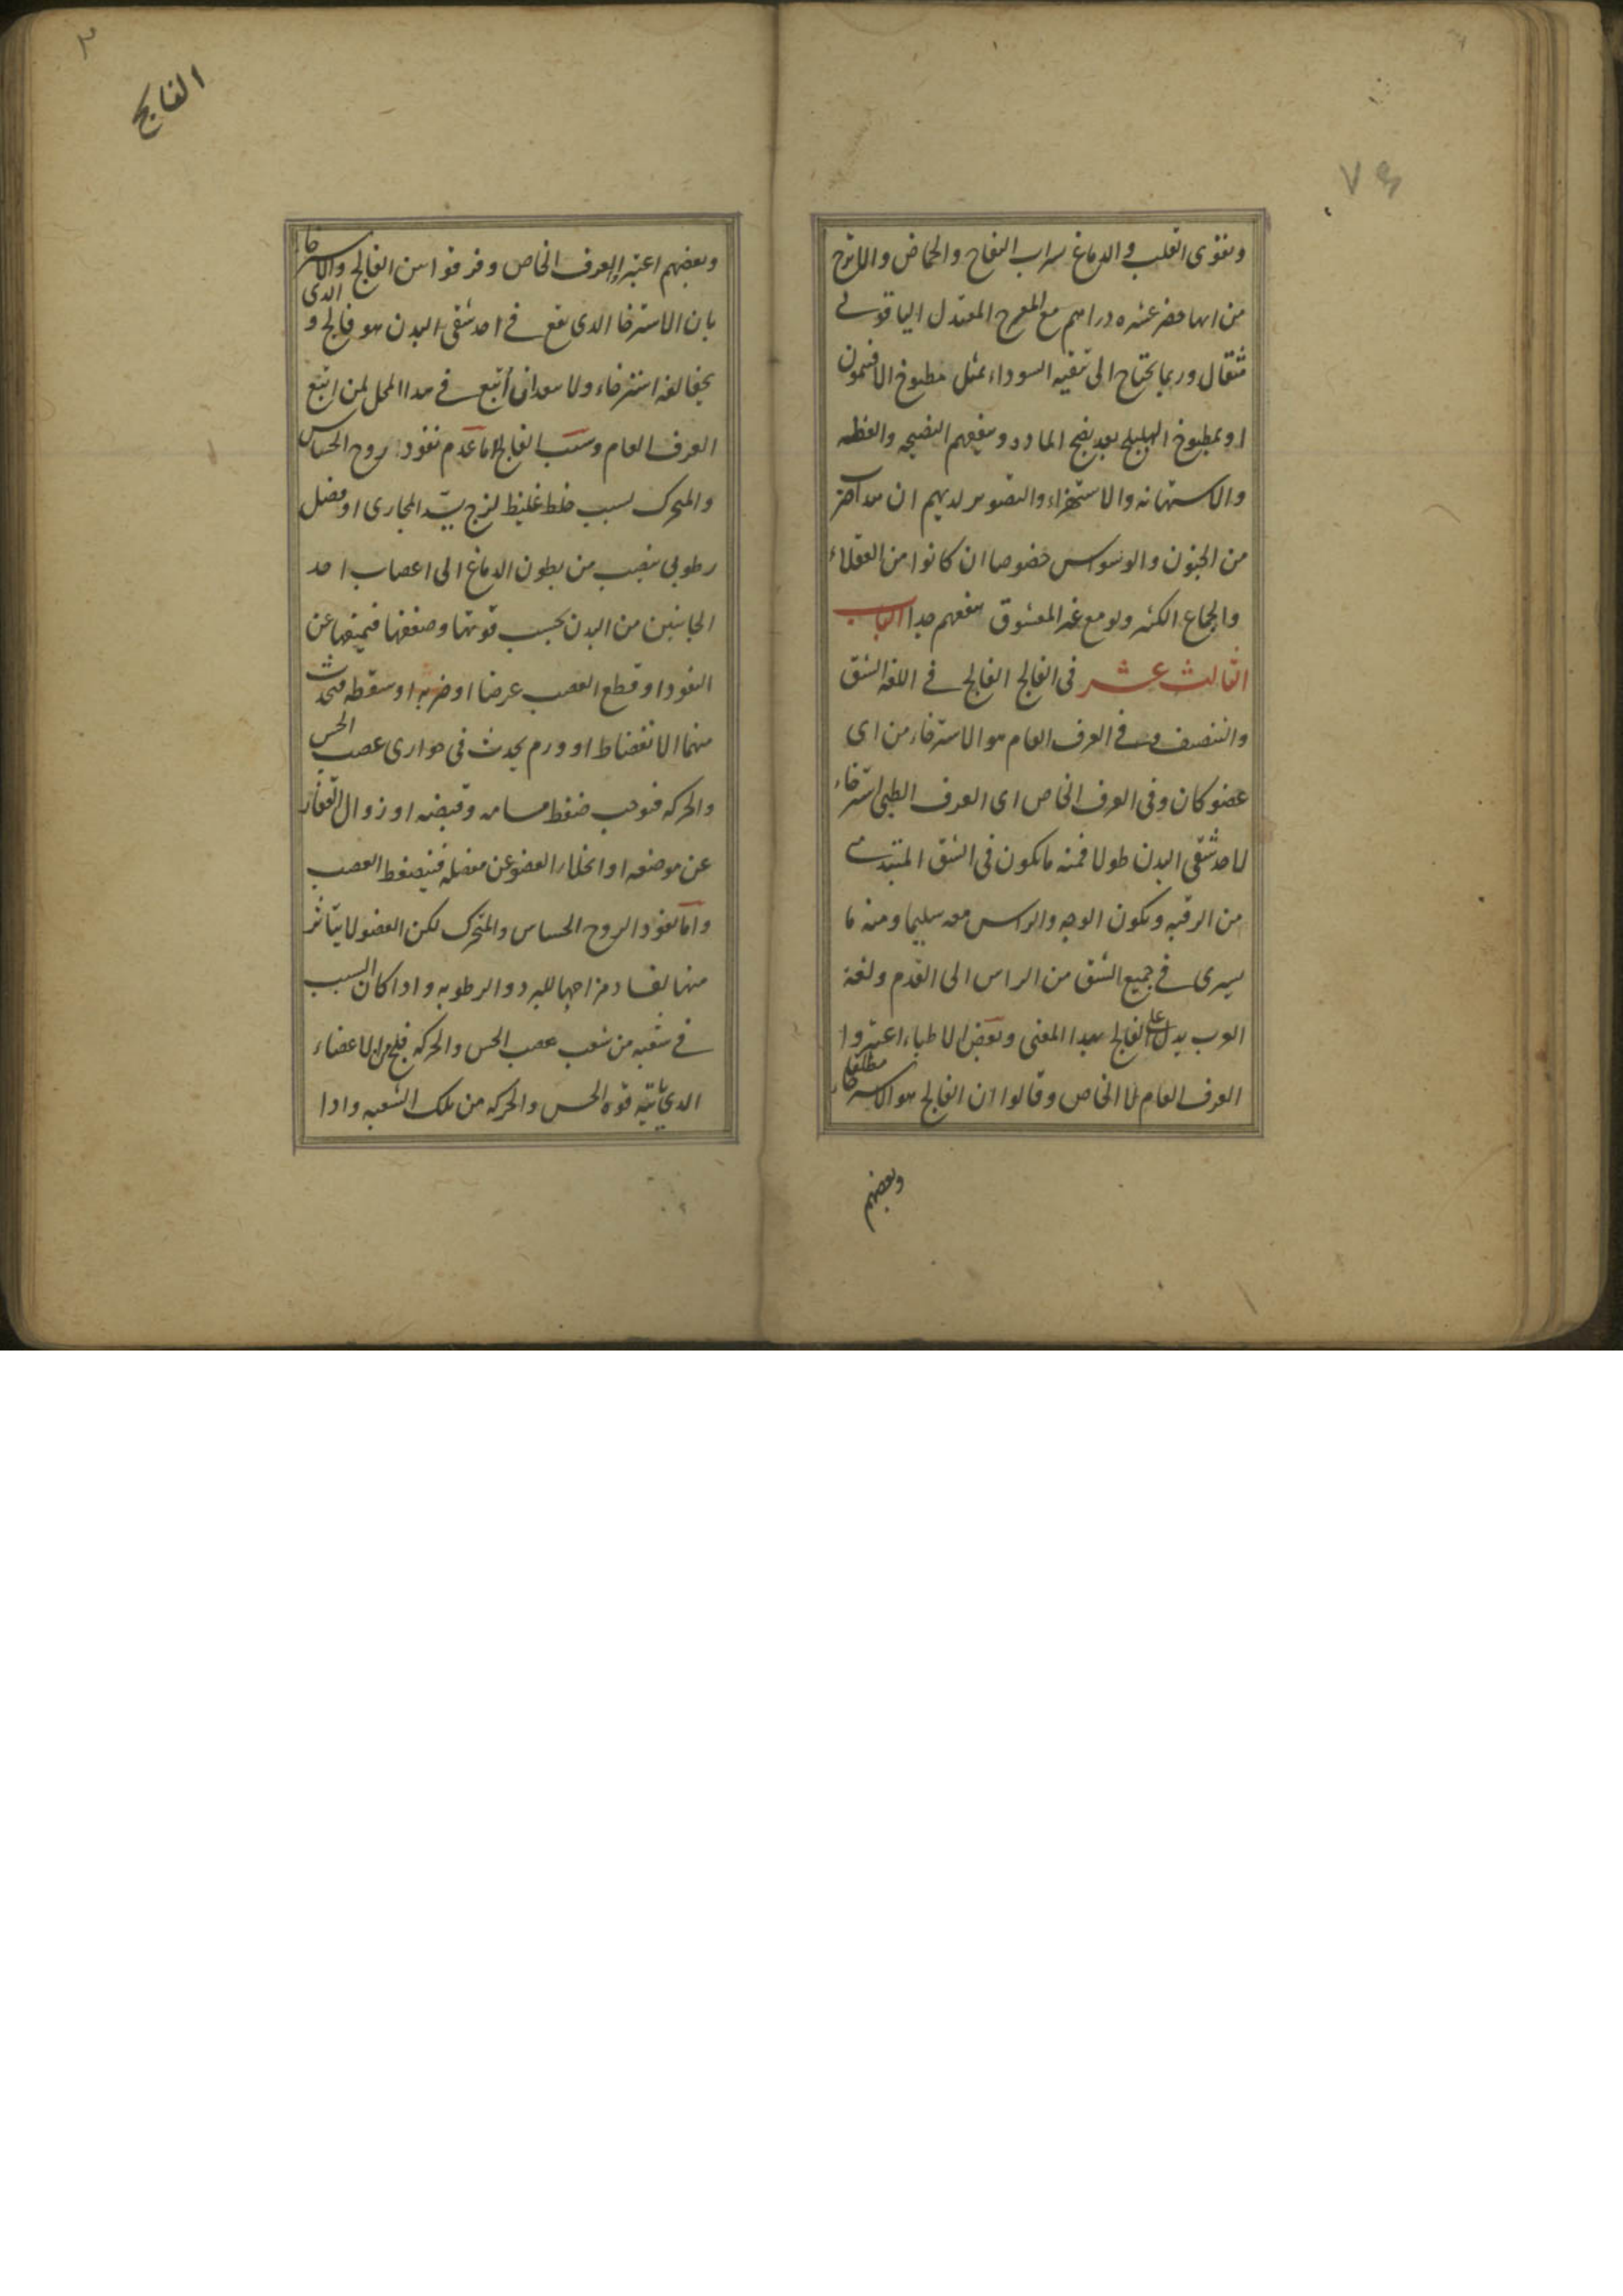 ويقوى القلب والدماغ بشراب التفاح والحماض والاترج
من ايها حضر عشره دراهم مع المفرح المعتدل الياقوتى
مثقال وربما يحتاج الى تنقيه السوداء بمثل مطبوخ الافتيمون
او بمطبوخ الهليلج بعد نضج الماده وينفعهم النصيحه والعظه
والاستهانه والاستهزاء والتصوير لديهم ان هذا
من الجنون والوسواس خصوصا ان كانوا من العقلاء
والجماع الكثير ولو مع غير المعشوق ينفعهم جدا الباب
الثالث عشر فى الفالج الفالج فى اللغه الشق
والتنصيف وفى العرف العام هو الاسترخاء من اى
عضو كان وفى العرف الخاص اى العرف الطبى استرخاء
لاحد شقى البدن طولا فمنه ما يكون فى الشق المبتدى
من الرقبه ويكون الوجه والراس معه سليما ومنه ما
يسرى فى جميع الشق من الراس الى القدم ولغه
العرب يدل على الفالج بهذا المعنى وبعض الاطباء اعتبروا
العرف العام لا الخاص وقالوا ان الفالج هو الاسترخاء مطلقا
وبعضهم
الفالج
وبعضهم اعتبروا العرف الخاص وفرقوا بين الفالج والاسترخاء
بان الاسترخا الذى يقع فى احد شقى البدن هو فالج والذى
يخالفه استرخاء ولا بعد ان أتبع فى هذا المحل لمن اتبع
العرف العام وسبب الفالج اما عدم نفوذ روح الحساس
والمتحرك بسبب خلط غليظ لزج يسد المجارى او فضل
رطوبى ينصب من بطون الدماغ الى اعصاب احد
الجانبين من البدن بحسب قوتها وضعفها فيمنعها عن
النفوذ او قطع العصب عرضا او ضربه او سقطه فيحدث
منهما الانضغاط او ورم يحدث فى مجارى عصب الحس
والحركه فتوجب ضغط مسامه وقبضه او زوال الفقار
عن موضعه او انخلاع العضو عن مفصله فينضغط العصب
واما نفوذ الروح الحساس والمتحرك لكن العضو لا يتاثر
منها لفساد مزاجها للبرد والرطوبه واذا كان السبب
فى شعبه من شعب عصب الحس والحركه فلج من الاعضاء
الذى ياتيه قوه الحس والحركه من تلك الشعبه واذا